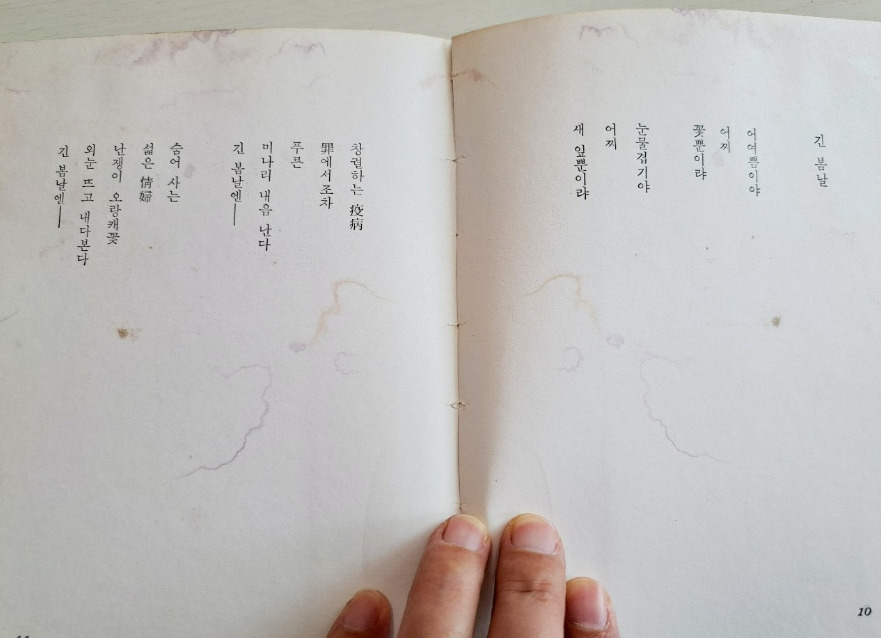 긴 봄날
어여쁨이야
어찌
꽃뿐이랴
눈물겹기야
어찌
새 잎뿐이랴
10
창궐하는 疫病
罪에서조차
푸른
미나리 내음 난다
긴 봄날엔──
숨어 사는
섧은 情婦
난쟁이 오랑캐꽃
외눈 뜨고 내다본다
긴 봄날엔──